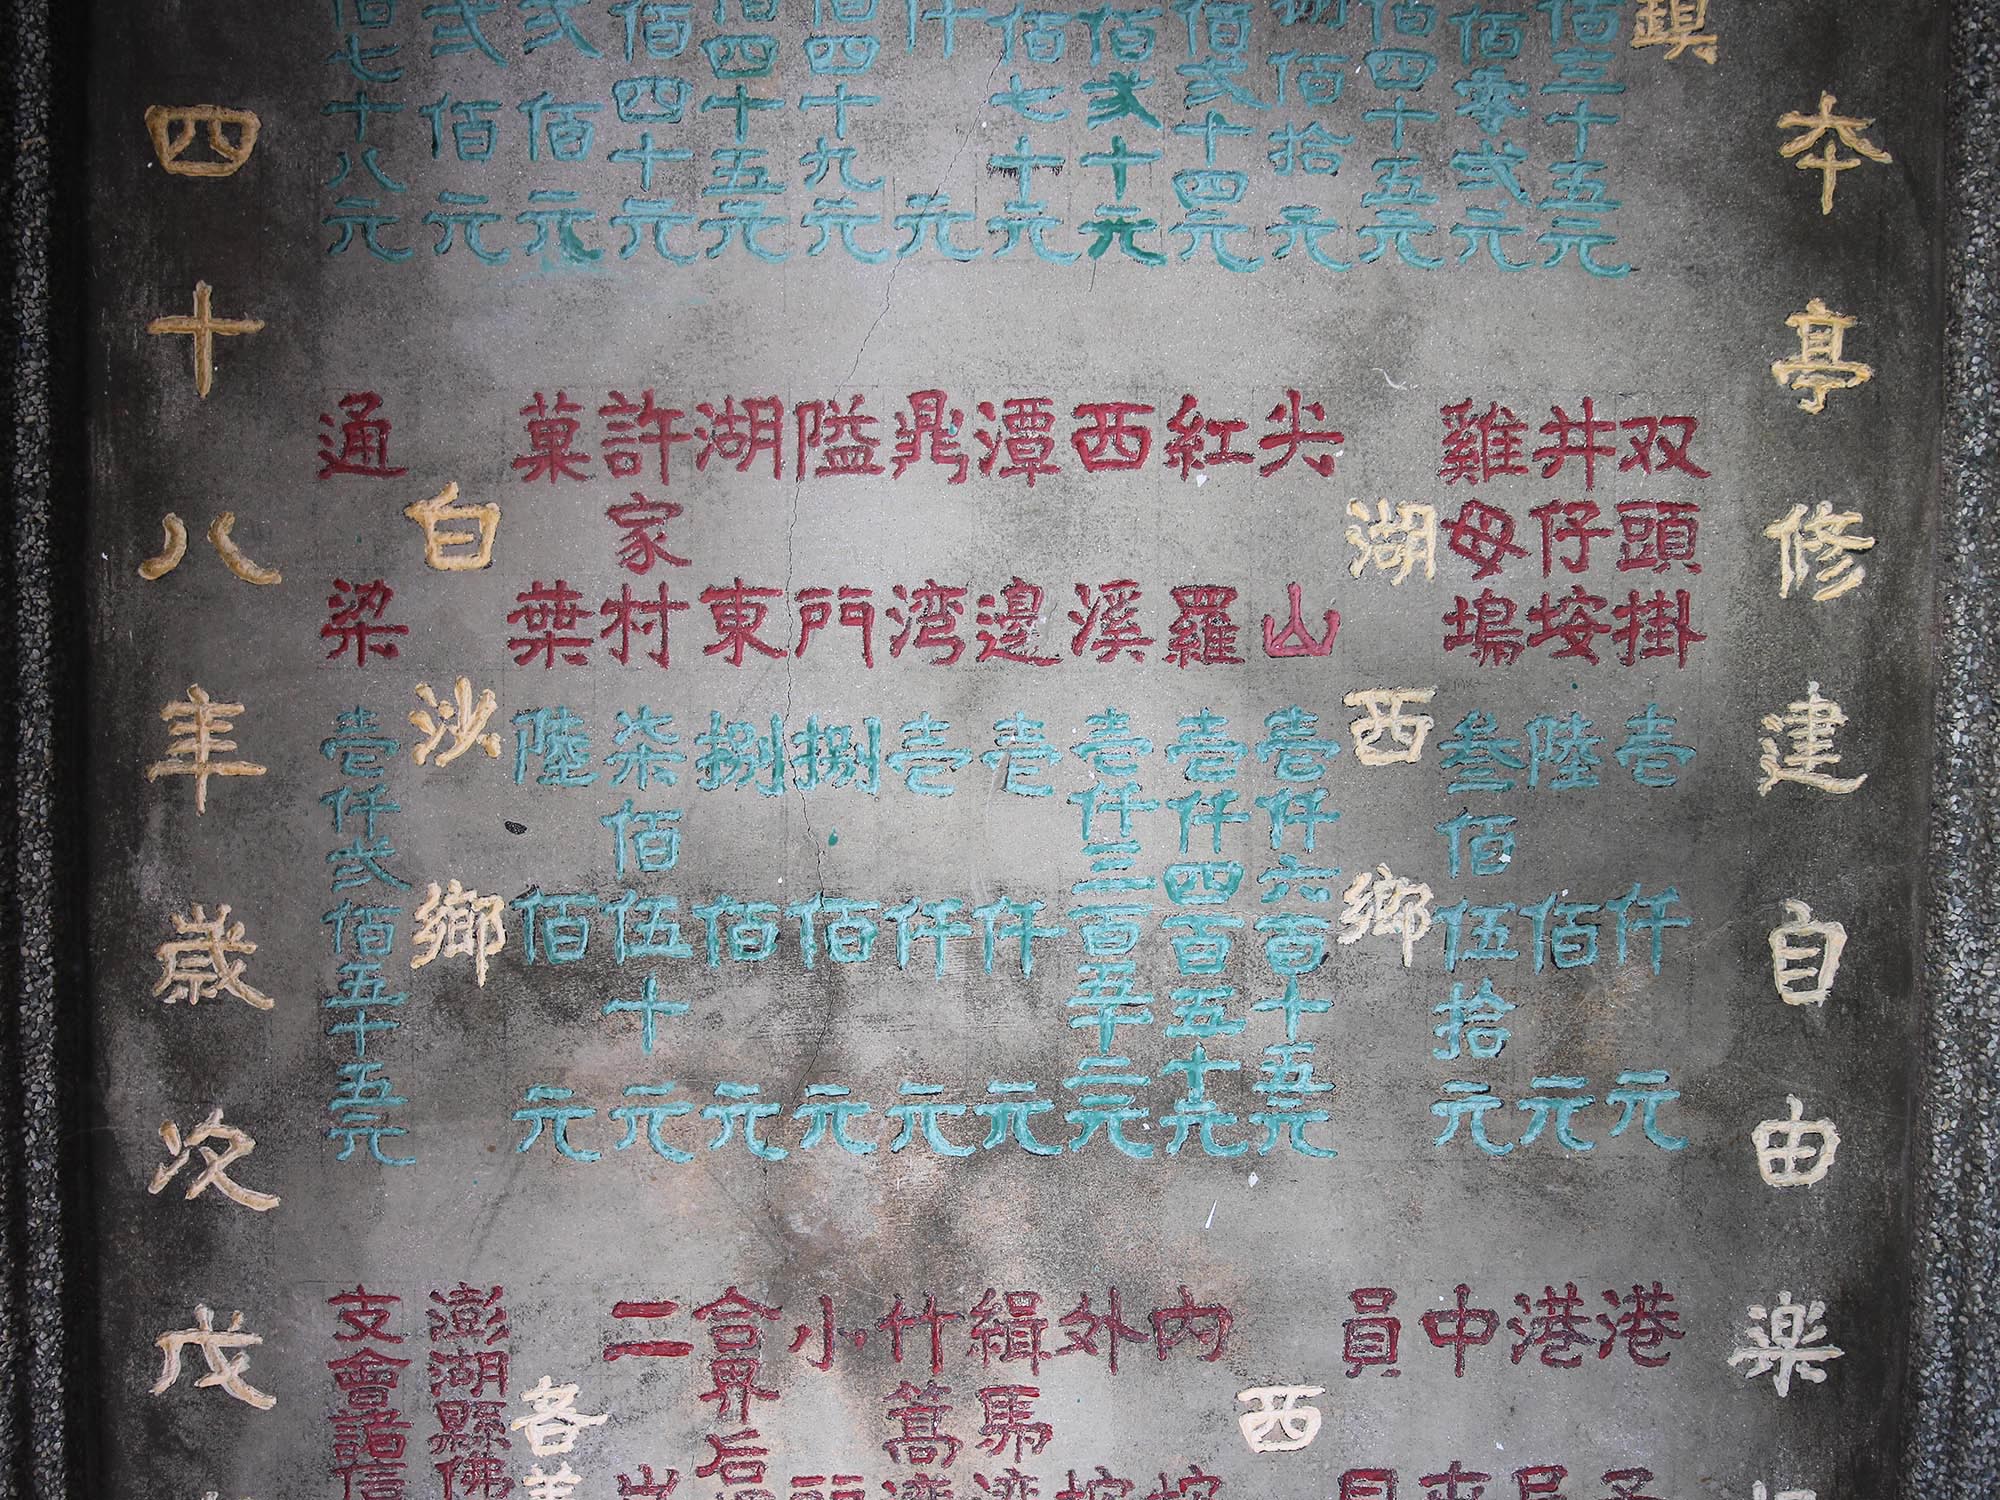 本亭修建自由楽
鎮
佰三十五元
佰零弍元
佰四十五元
捌佰拾元
佰弍十四元
佰弍十元
佰七十元
仟元
佰四十九元
佰四十五元
佰四十元
弍佰元
弍佰元
佰七十八元
双頭掛壱仟元
井仔垵陸佰元
雞母塢叁佰伍拾元
湖西鄉
尖山壱仟六百十五元
紅羅壱仟四百五十九元
西溪壱仟三百五十二元
潭邊壱仟元
鼎湾壱仟元
隘門捌佰元
湖東捌佰元
許家村柒佰伍十元
菓葉陸佰元
白沙鄉
通梁壱仟弍佰五十五元
港子
港尾
中屯
員貝
西
内垵
外垵
緝馬湾
竹篙湾
小
合界后
二
各
澎湖縣佛
支會諸信
四十八年歲次戊